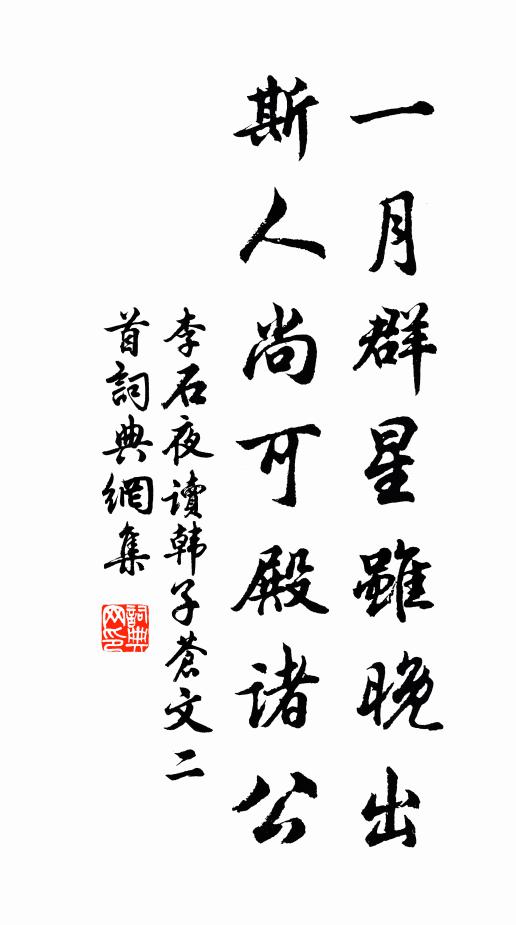 一月群星雖晚出
斯人尚可殿諸公
李石夜讀韩子蒼文二
首詞典網集
詞典
网印